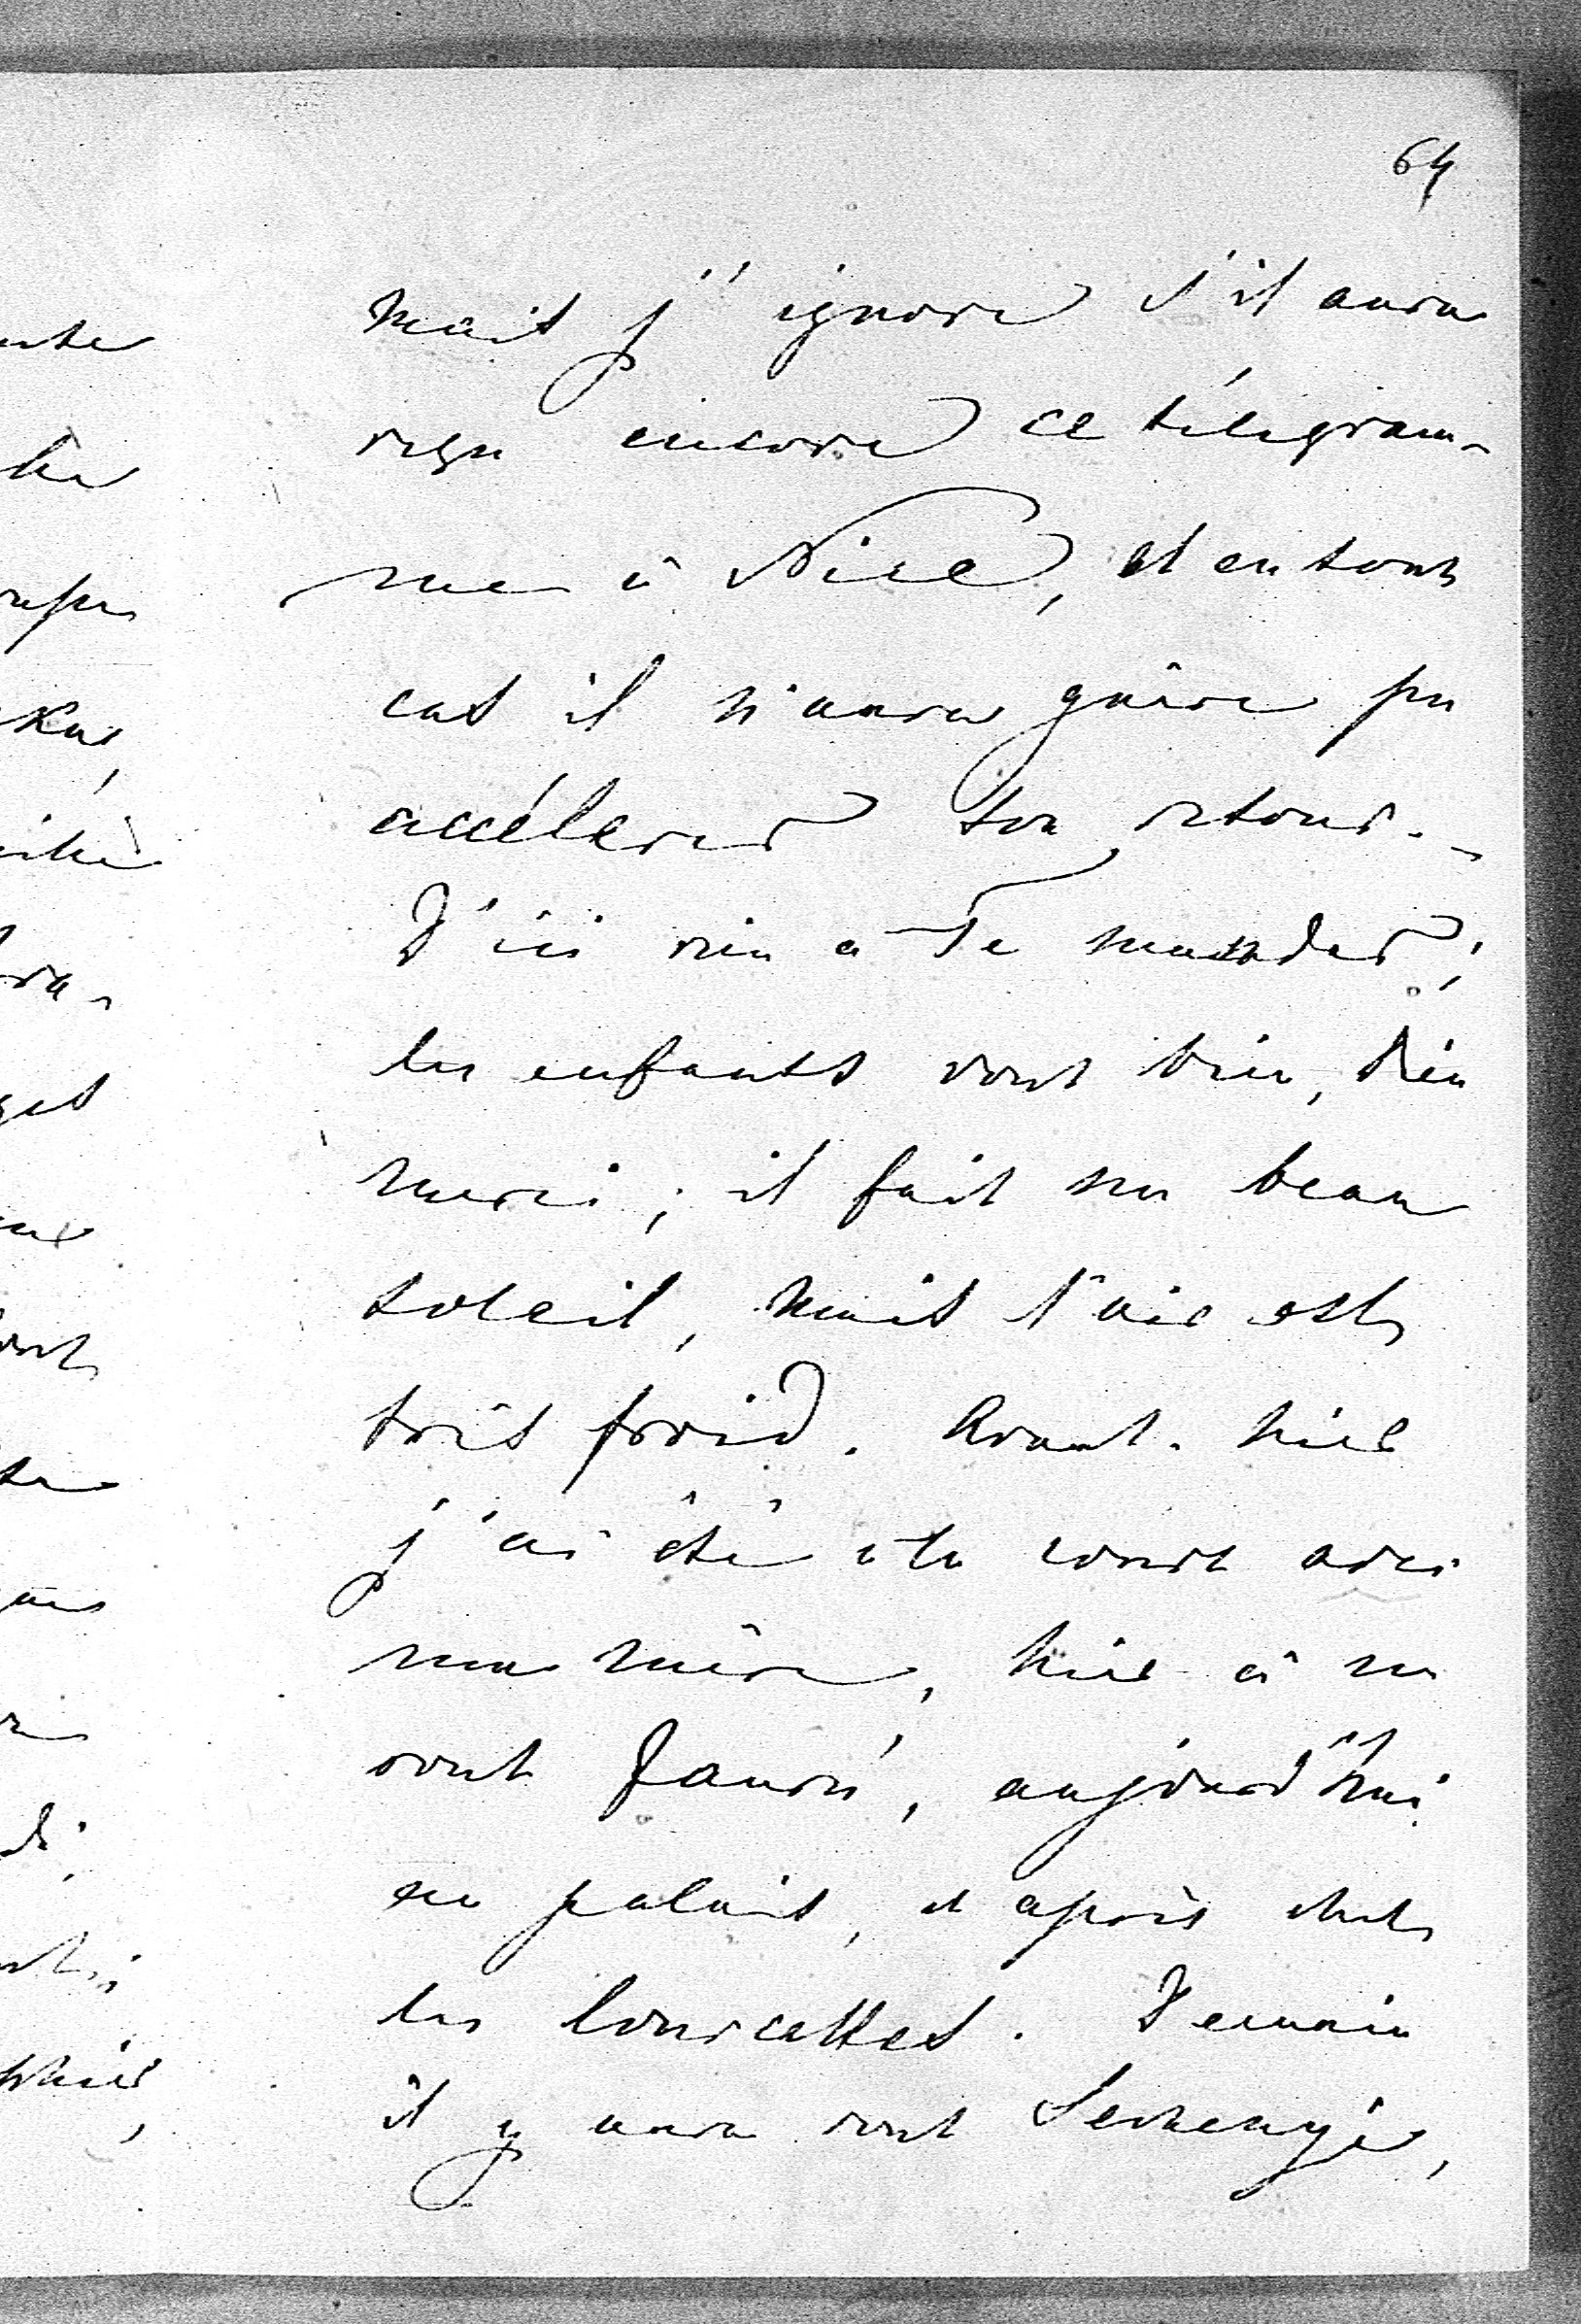 64
mais j'ignore s'il aura
reçu encore ce télégram-
me à Nice, et en tout
cas il n'aura guère pu
accélerer son retour. -
D'ici rien à Te mander;
les enfants vont bien, Dieu
merci; il fait un beau
soleil, mais l'air est
très froid. Avant-hier
j'ai été à la court avec
ma mère, hier à un
rout Jauré, aujourd'hui
au palais, et après chez
les Lourcettes. Demain
il y aura rout